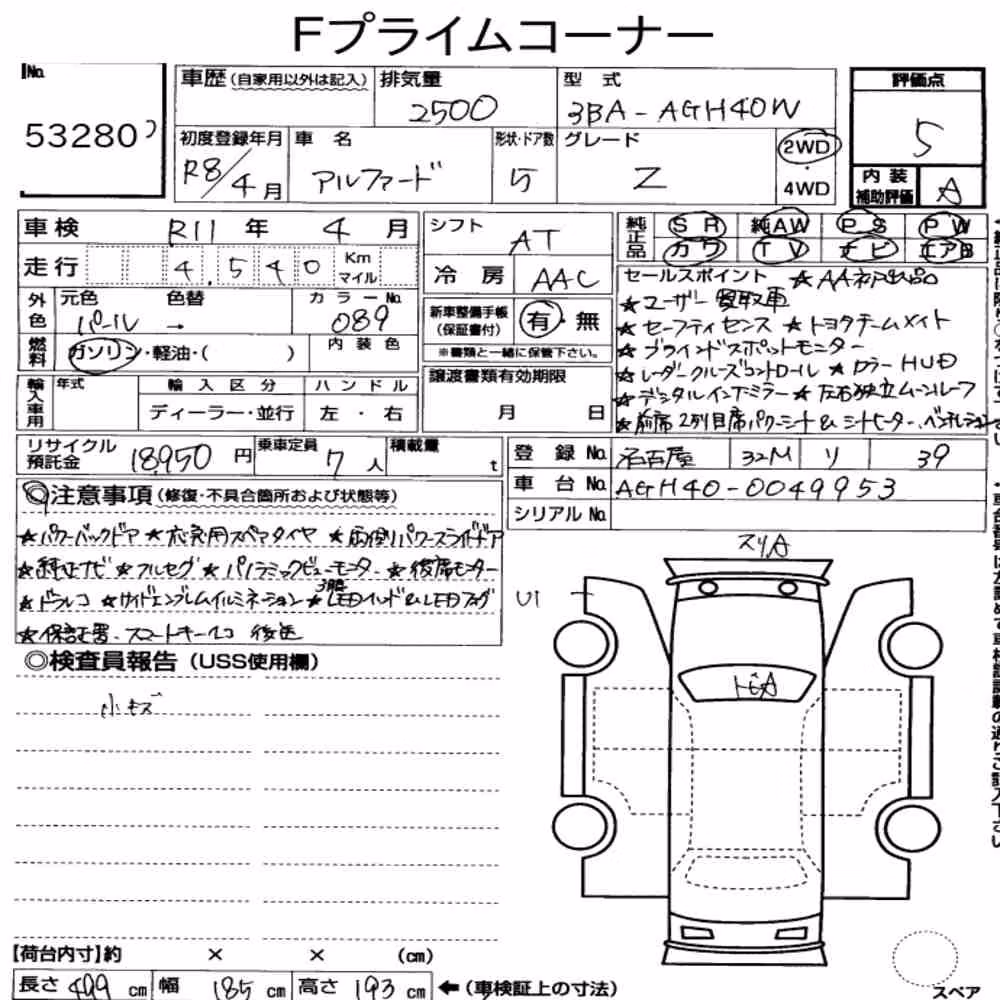 Fプライムコーナー
No.
53280
車歴(自家用以外は記入)
排気量
2500
型 式
3BA-AGH40W
評価点
5
初度登録年月
R8/4月
車 名
アルファード
形状・ドア数
5
グレード
Z
2WD
・
4WD
内 装
補助評価
A
車検 R11 年 4 月
走行 4,540 Km マイル
シフト AT
冷 房 AAC
純正品
SR 純AW PS PW
カワ TV ナビ エアB
外色
元色 色替 カラーNo.
パール → 089
新車整備手帳
(保証書付)
有・無
※書類と一緒に保管下さい。
燃料
ガソリン・軽油・( )
内 装 色
セールスポイント ★AA初出品
★ユーザー買取車
★セーフティセンス ★トヨタチームメイト
★ブラインドスポットモニター
★レーダークルーズコントロール ★カラーHUD
★デジタルインナーミラー ★左右独立ムーンルーフ
★前席2列目席パワーシート&シートヒーター、ベンチレーション
輸入車用
年式
輸 入 区 分
ハ ン ド ル
ディーラー・並行
左 ・ 右
譲渡書類有効期限
月 日
リサイクル
預託金
18,950 円
乗車定員
7 人
積載量
t
登 録 No. 名古屋 32M リ 39
車 台 No. AGH40-0049953
シリアル No.
◎注意事項(修復・不具合箇所および状態等)
★パワーバックドア ★応急用スペアタイヤ ★両側パワースライドドア
★純正ナビ ★フルセグ ★パノラミックビューモニター ★後席モニター
★ドラレコ ★サイドエンブレムイルミネーション ★3眼LEDヘッド&LEDフォグ
★保証書、スマートキー1コ 後送
◎検査員報告(USS使用欄)
小キズ
スリA
U1
トビA
【荷台内寸】約 × × (cm)
長さ 499 cm 幅 185 cm 高さ 193 cm ←(車検証上の寸法)
スペア